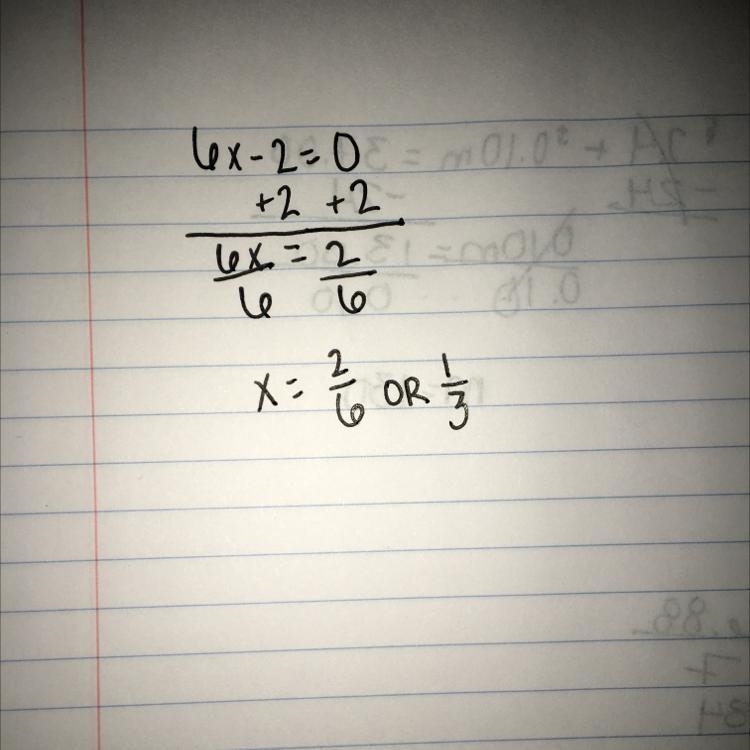 6x-2=0
+2 +2
6x = 2
6 6
x = 2/6 OR 1/3